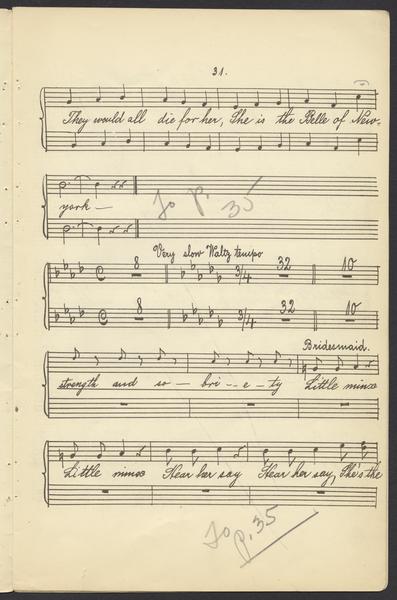 31.
They would all die for her, She is the Belle of New-
york —
To p. 35
Very slow Waltz tempo
8 3/4 32 10
8 3/4 32 10
Bridesmaid.
strength and so — bri -- e - ty Little minx
Little minx Hear her say Hear her say, She's the
To p. 35